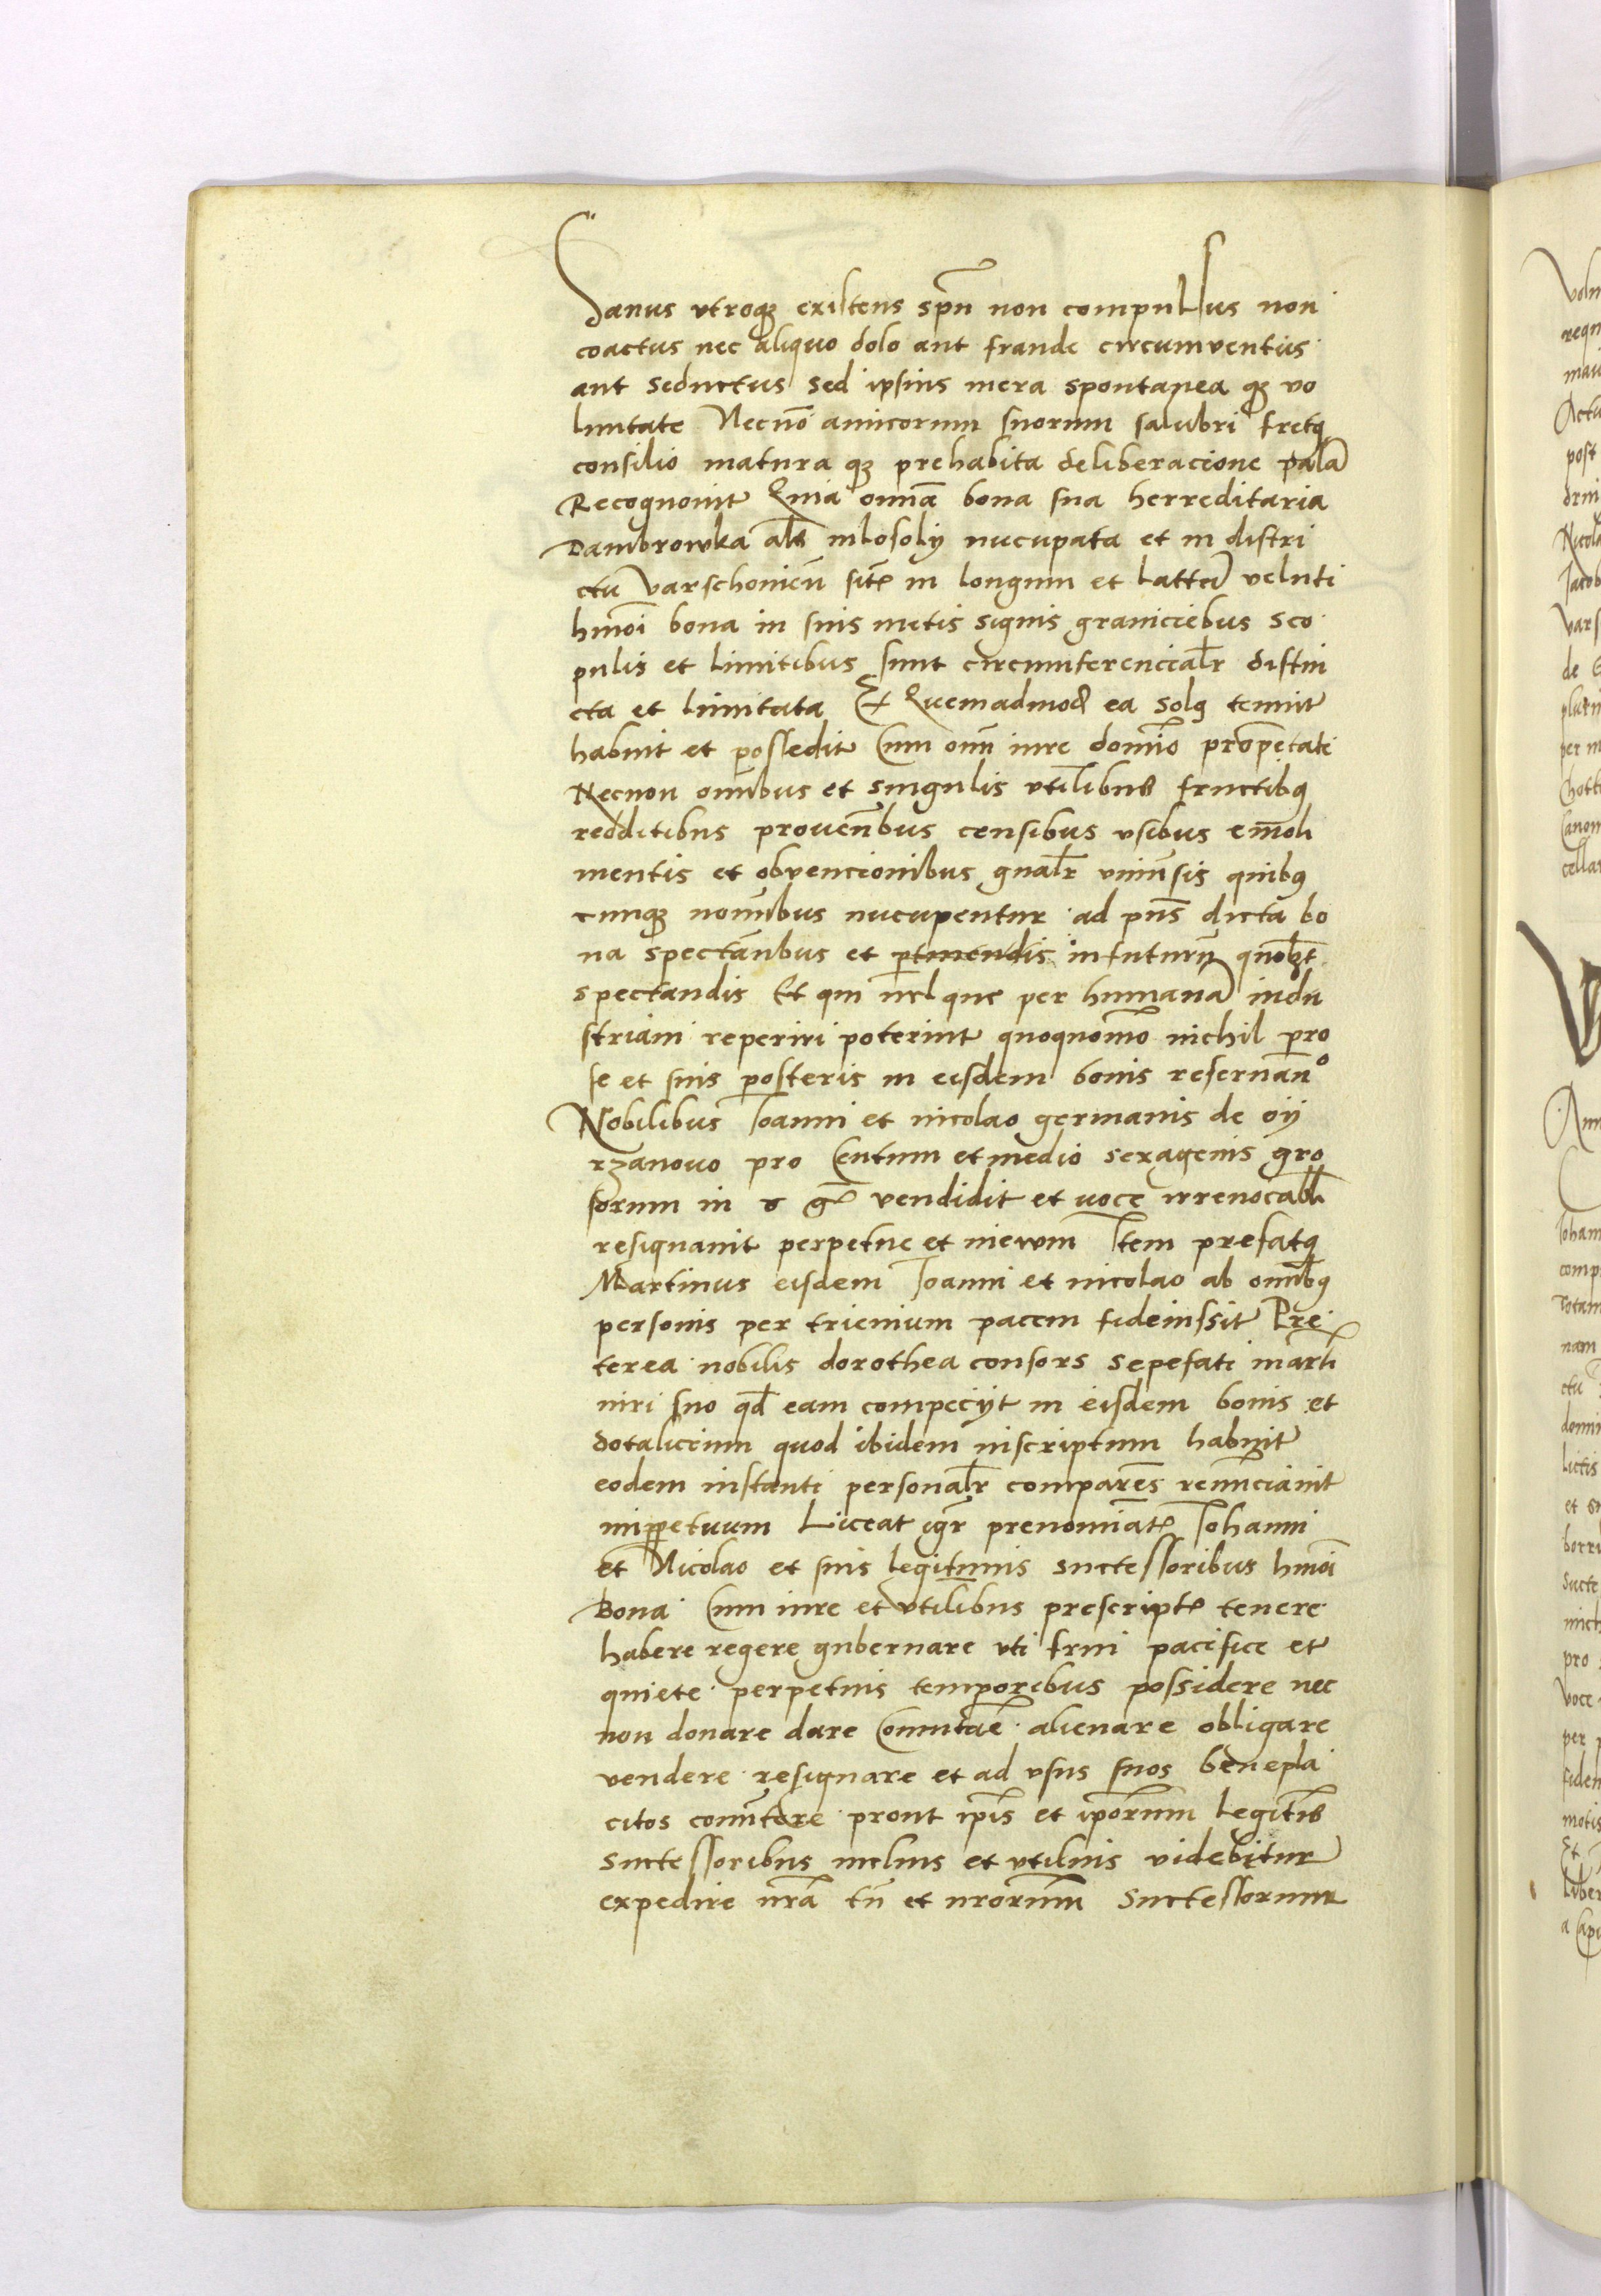 Sanus utroqȝ existens spũ non compulsus non
coactus nec aliquo dolo aut fraude circumventus
aut seductus sed ipsius mera spontanea qȝ vo
luntate Necnõ amicorum suorum salubri fretꝗ
consilio matura qȝ prehabita deliberacione palã
Recognovit Quia omnia bona sua herreditaria
Dambrowka als mlosoly nucupata et in distri
ctu varschonieñ sitꝭ in longum et lattũ veluti
hmõi bona in suis metis signis graniciebus sco
pulis et limitibus sunt circumferencialr̃ distin
cta et limitata Et Quemadmod ea solꝗ tenuit
habuit et possedit Cum omĩ iure dominio proprietati
Necnon omĩbus et singulis utilitibus fructibꝗ
redditibus proventibus censibus usibus emoli
mentis et obvencionibus gñalr̃ uniũsis quibꝗ
cunqȝ nomĩbus nucupentur ad pñs dicta bo
na spectañbus et ꝑtinendis in futurũ quolꝫt
spectandis Et qui vel que per humanã indu
striam reperiri poterint quoquomõ nichil pro
se et suis posteris in eisdem bonis reservanº
Nobilibus Ioanni et nicolao germanis de oij
rzanovo pro Centum et medio sexagenis gro
sorum in gꝭ vendidit et voce irrevocabli
resignavit perpetue et in ewm Item prefatꝗ
Martinus eisdem Ioanni et nicolao ab omĩbꝗ
personis per trienium pacem fideiussit Pre
terea nobilis dorothea consors sepefati marti
viri suo qd eam compeciit in eisdem bonis et
dotalicium quod ibidem inscriptum habuit
eodem instanti personalr̃ comparẽs renunciavit
inpꝑetuum Liceat igr̃ prenominatꝭ Iohanni
et Nicolao et suis legitimis suctessoribus hmõi
Bona Cum iure et utilitibus prescriptꝭ tenere
habere regere gubernare uti frui pacifice et
quiete perpetuis temporibus possidere nec
non donare dare Comutar̃e alienare obligare
vendere resignare et ad usus suos benepla
citos convt̃ere prout ip̃is et ip̃orum legitĩs
suctessoribus melius et utilius videbitur
expedire nr̃a tñ et nr̃orum suctessorum